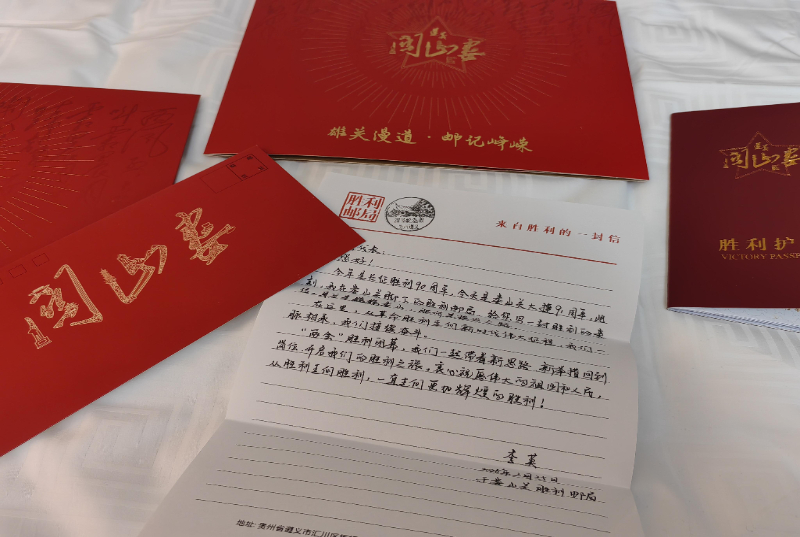 娄山关
雄关漫道·邮记峥嵘
娄山关
胜利护
VICTORY PASSP
娄山关
胜利
邮局
来自胜利的一封信
您好！
今年是长征胜利90周年，今天是娄山关大捷91周年，此
刻，我在娄山关脚下的胜利邮局，给您写一封胜利的
在这里，从革命胜利走向新时代伟大征程，我们一
脉相承，我们接续奋斗。
“两会”胜利闭幕，我们一起带着新思路、新举措回到
岗位，开启我们的胜利之旅，衷心祝愿伟大的祖国和人民，
从胜利走向胜利，一直走向更加辉煌的胜利！
李英
于娄山关胜利邮局
地址：贵州省遵义市汇川区